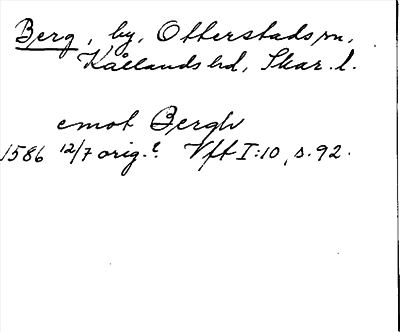 Berg, by, Otterstads sn,
Kållands hd, Skar. l.
emot Bergh
1586 12/7 orig.? Vft I:10, s. 92.